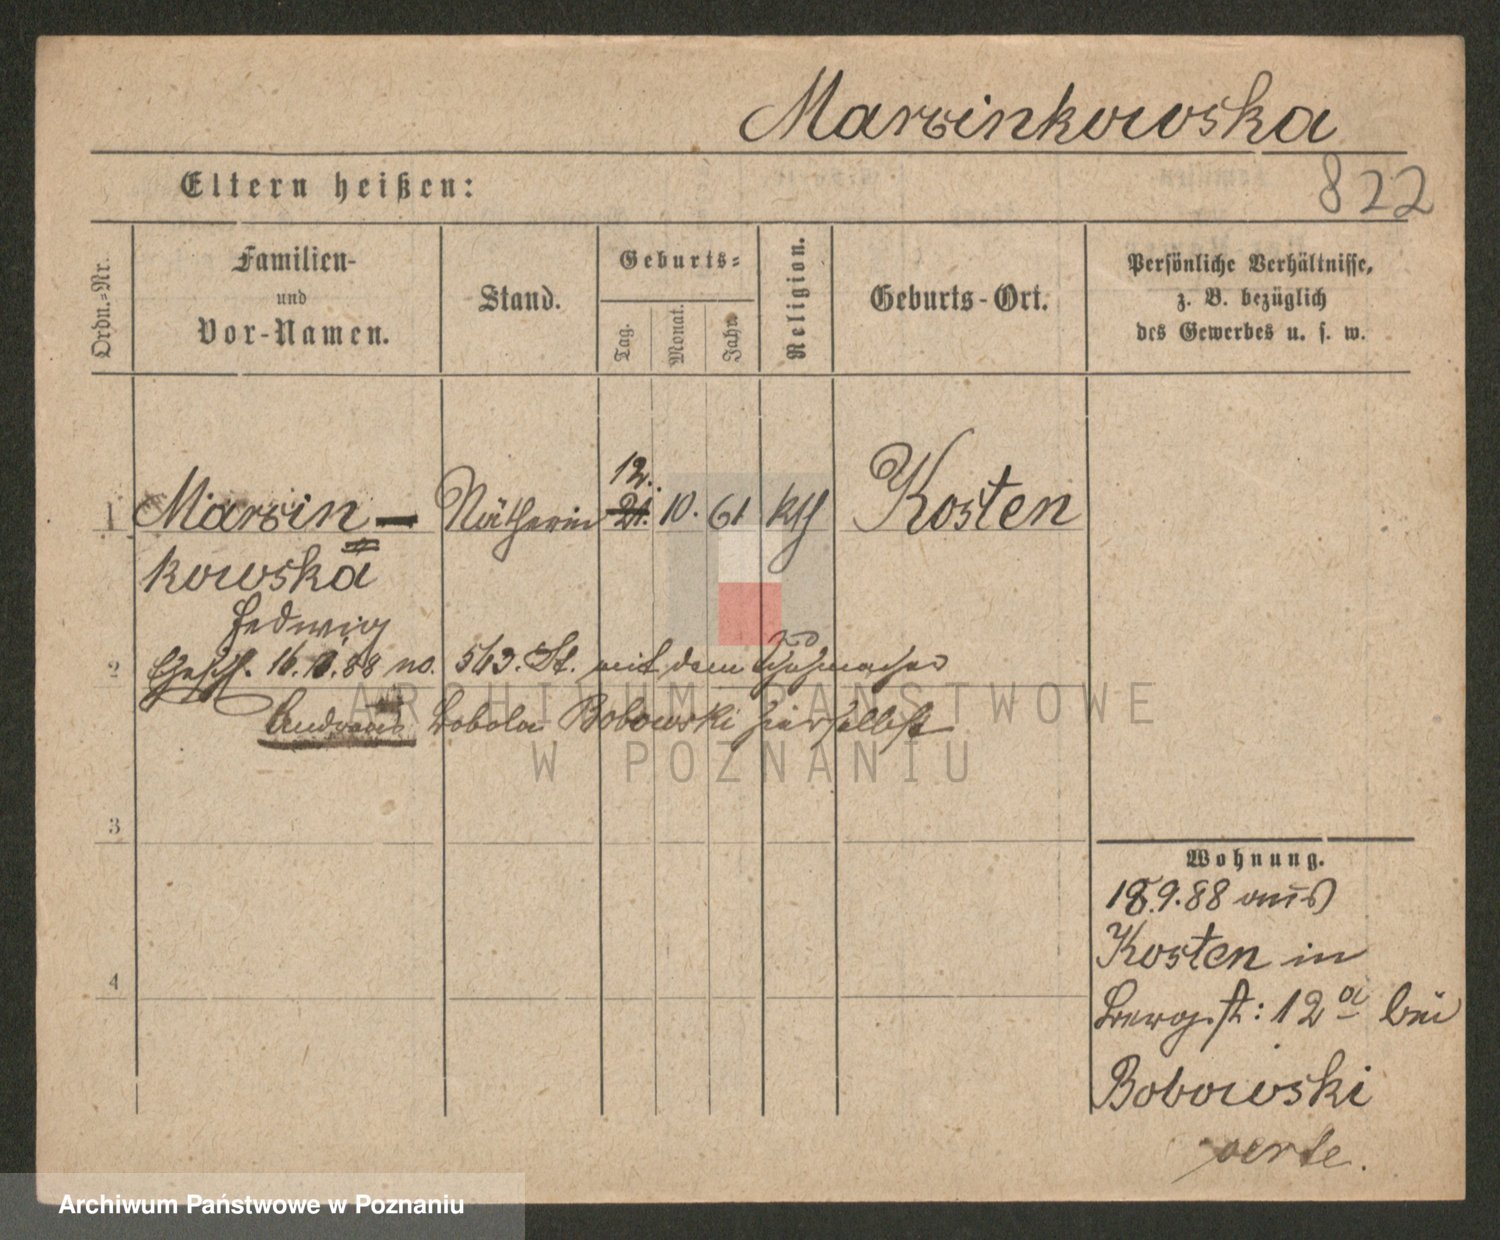 Marcinkowska
822
Eltern heißen:
Ordn.-Nr.
Familien-
und
Vor-Namen.
Stand.
Geburts-
Tag.
Monat.
Jahr.
Religion.
Geburts-Ort.
Persönliche Verhältnisse,
z. B. bezüglich
des Gewerbes u. s. w.
12.
1 Marcin- Nätherin 21. 10. 61 kth Kosten
kowska
Hedwig
2 16. 88 no. 563. St. mit dem Schuhmacher
Bobola Bobowski hierselbst
ARCHIWUM PAŃSTWOWE
W POZNANIU
3
4
Wohnung.
18.9.88 aus
Kosten in
Bergstr: 12a bei
Bobowski
Archiwum Państwowe w Poznaniu